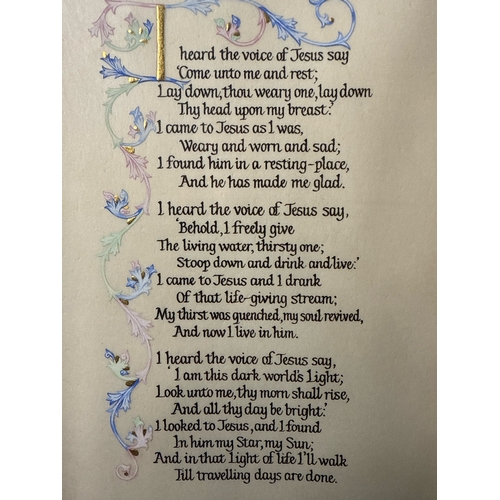 I heard the voice of Jesus say
‘Come unto me and rest;
Lay down, thou weary one, lay down
Thy head upon my breast.’
I came to Jesus as I was,
Weary and worn and sad;
I found him in a resting-place,
And he has made me glad.
I heard the voice of Jesus say,
‘Behold, I freely give
The living water, thirsty one;
Stoop down and drink and live:’
I came to Jesus and I drank
Of that life-giving stream;
My thirst was quenched, my soul revived,
And now I live in him.
I heard the voice of Jesus say,
‘I am this dark world's light;
Look unto me, thy morn shall rise,
And all thy day be bright.’
I looked to Jesus, and I found
In him my Star, my Sun;
And in that light of life I'll walk
Till travelling days are done.